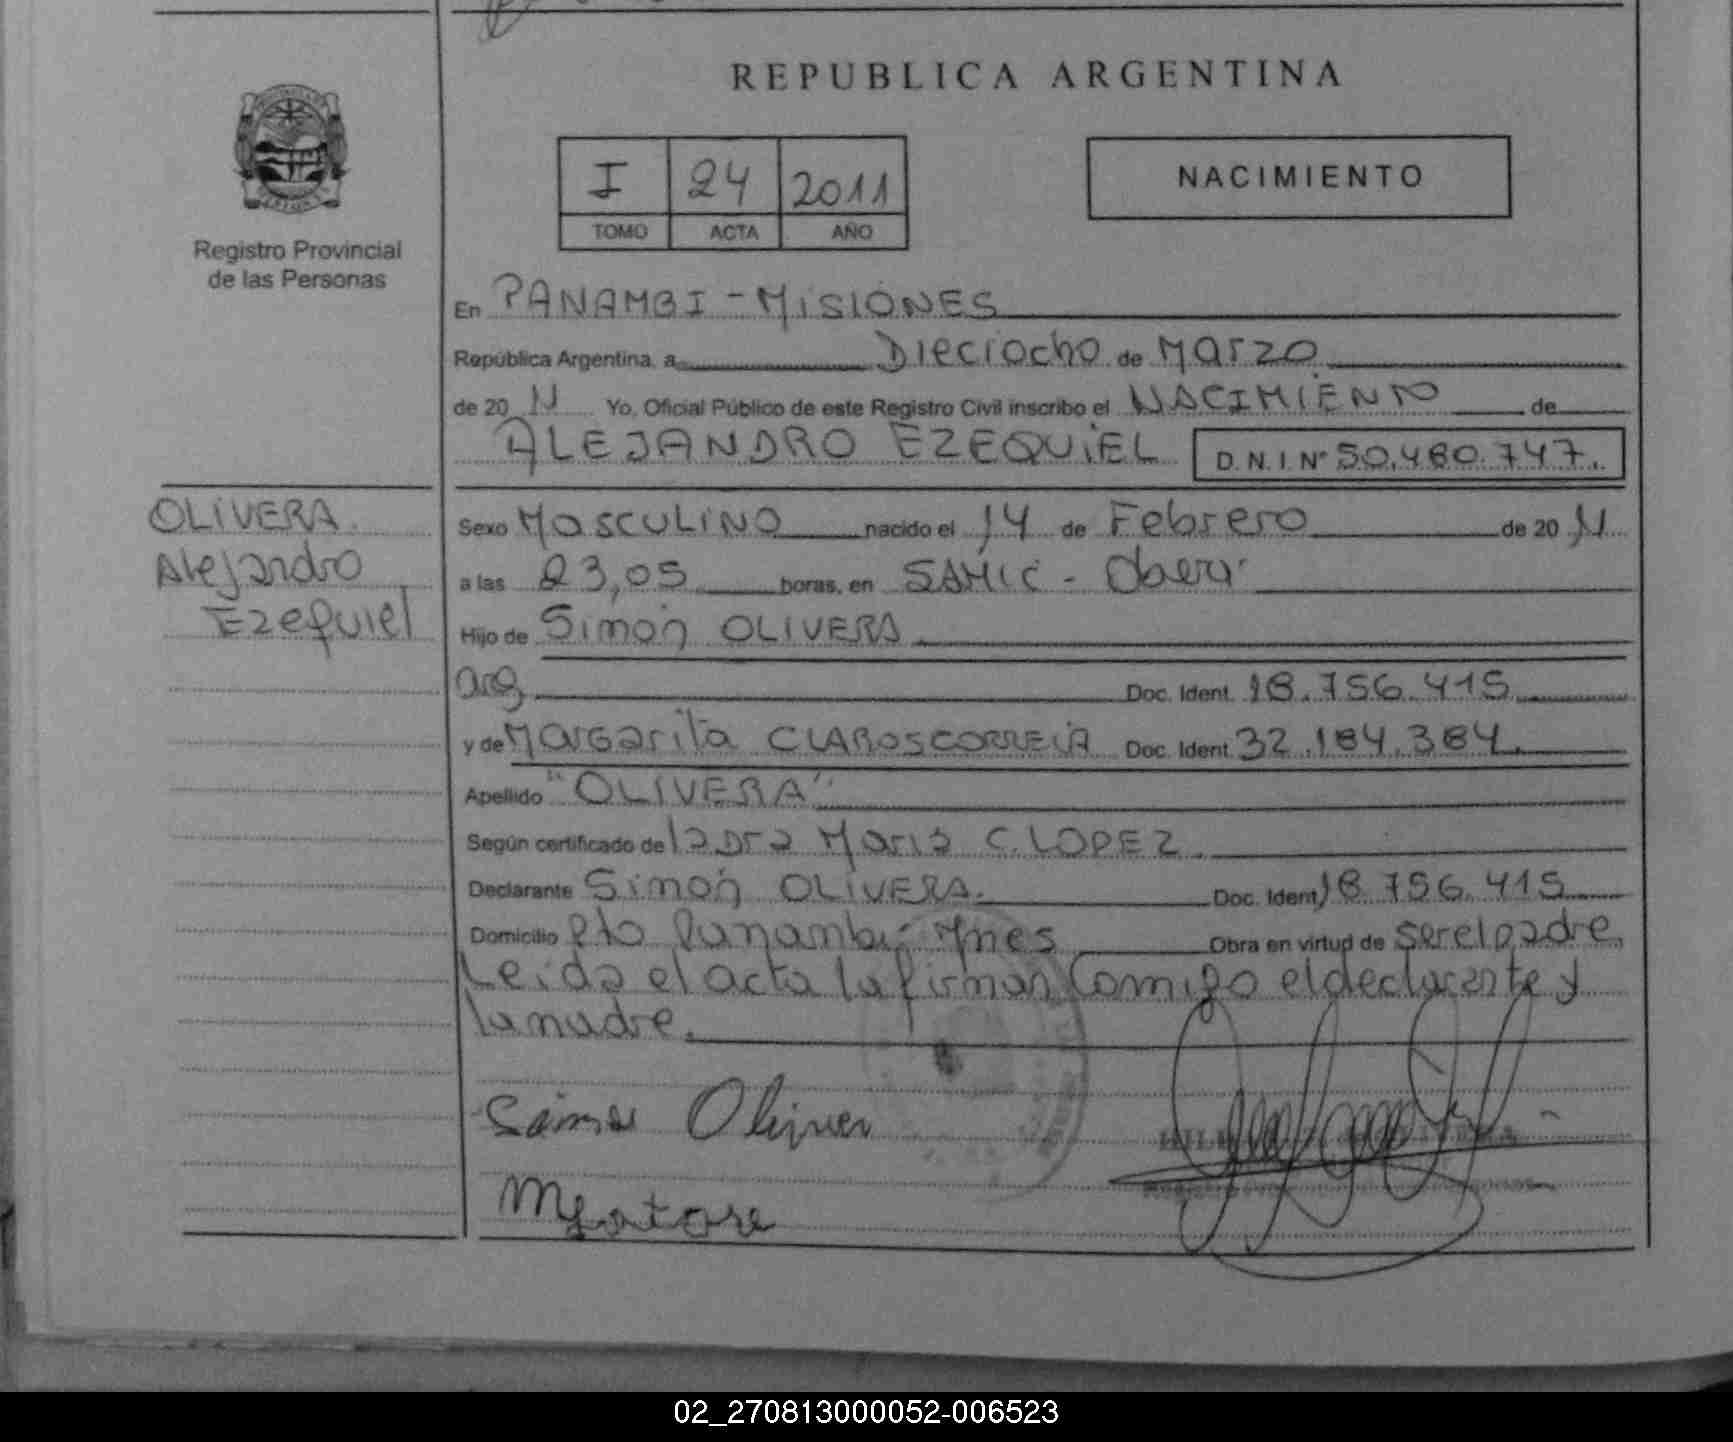 REPUBLICA ARGENTINA
I 24 2011
TOMO ACTA AÑO
NACIMIENTO
Registro Provincial
de las Personas
En PANAMBI - MISIONES
República Argentina, a Dieciocho de Marzo
de 20 11 Yo, Oficial Público de este Registro Civil inscribo el NACIMIENTO de
ALEJANDRO EZEQUIEL D.N.I. N° 50.480.747.
OLIVERA
Alejandro
Ezequiel
Sexo MASCULINO nacido el 14 de Febrero de 20 11
a las 23,05 horas, en SAMIC - Oberá
Hijo de Simón OLIVERA
arg Doc. Ident. 18.756.415
y de Margarita CLAROSCORREIA Doc. Ident. 32.184.384.
Apellido "OLIVERA"
Según certificado de la Dra Maria C. LOPEZ.
Declarante Simón OLIVERA. Doc. Ident. 18.756.415
Domicilio Pto Panambi - Mnes Obra en virtud de ser el padre,
Leida el acta la firman Comigo el declarante y
la madre.
Olivera
02_270813000052-006523